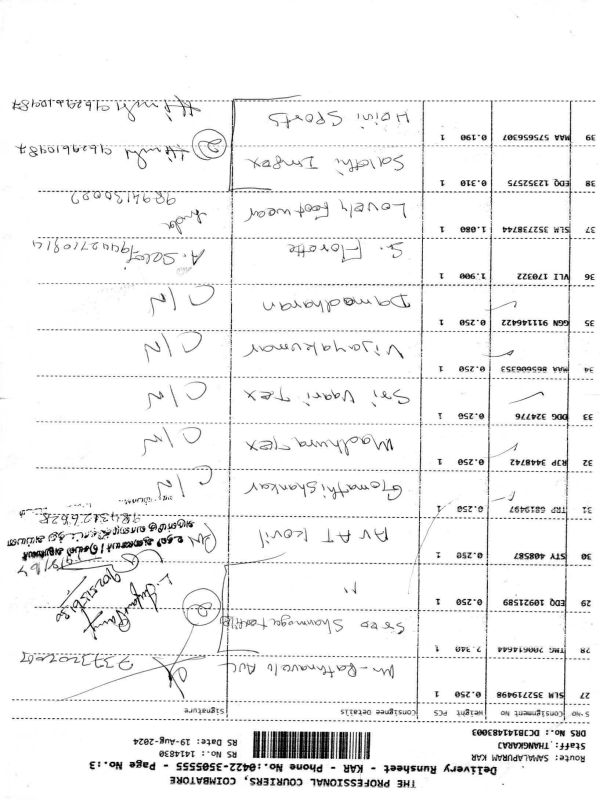 THE PROFESSIONAL COURIERS, COIMBATORE
Delivery Runsheet - KAR - Phone No.:0422-3505555 - Page No.:3
Route: SAMALAPURAM KAR
Staff: THANGKARAJ RS No.: 1414830
DRS No.: DCJB141483003 RS Date: 19-Aug-2024
S.No Consignment No Weight PCS Consignee Details Signature
27 SLM 352719498 0.250 1 Mr-Rathnavelu
28 TMG 1 Sree Shanmuga
29 EDQ 10921589 0.250 1 "
30 STY 408587 0.250 1 Av AT Kovil
31 TRT 6819497 0.250 1 Gomathishankar C/N
32 RJP 3448742 0.250 1 Madhura Tex C/N
33 DDG 324776 0.250 1 Sri Vaari Tex C/N
34 MAA 865606353 0.250 1 Vijayakumar C/N
35 GGN 911146422 0.250 1 Damodharan C/N
36 VLI 170322 1.900 1 S. Florette 9442710814
37 SLM 352738744 1.080 1 Lovely Foot wear
38 EDQ 12352575 0.310 1 Sakthi Impex 2 9629610487
39 MAA 575656307 0.190 1 Hoini Sports 9629610487